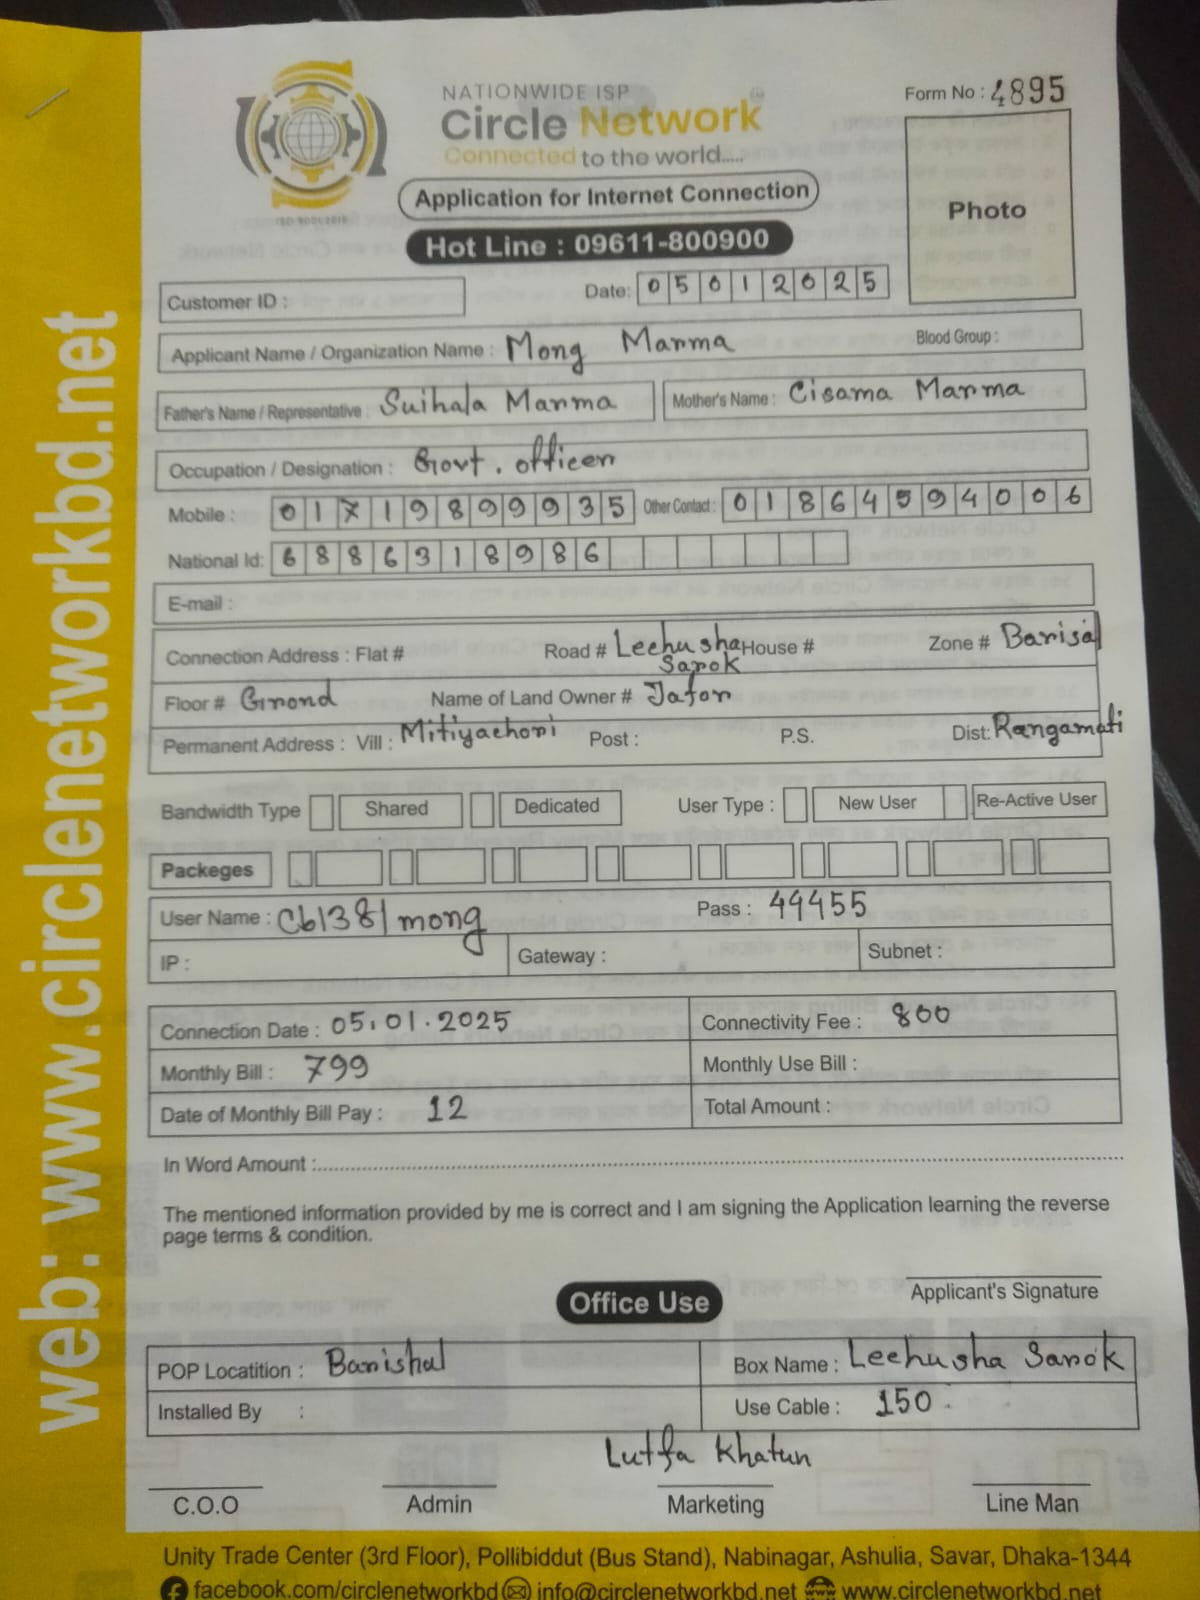 NATIONWIDE ISP
Circle Network
Connected to the world.....
Form No : 4895
Application for Internet Connection
Hot Line : 09611-800900
Photo
Customer ID :
Date: 05012025
Applicant Name / Organization Name : Mong Marma Blood Group :
Father's Name / Representative : Suihala Marma Mother's Name : Cisama Marma
Occupation / Designation : Govt. officer
Mobile : 01719899935 Other Contact : 01864594006
National Id: 6886318986
E-mail :
Connection Address : Flat # Road # Leehusha Sarok House # Zone # Barisal
Floor # Grond Name of Land Owner # Jafor
Permanent Address : Vill : Mitiyachori Post : P.S. Dist: Rangamati
Bandwidth Type Shared Dedicated User Type : New User Re-Active User
Packeges
User Name : Cb1381mong Pass : 44455
IP : Gateway : Subnet :
Connection Date : 05.01.2025 Connectivity Fee : 800
Monthly Bill : 799 Monthly Use Bill :
Date of Monthly Bill Pay : 12 Total Amount :
In Word Amount :
The mentioned information provided by me is correct and I am signing the Application learning the reverse
page terms & condition.
Applicant's Signature
Office Use
POP Locatition : Barishal Box Name : Leehusha Sarok
Installed By : Use Cable : 150
Lutfa Khatun
C.O.O Admin Marketing Line Man
Unity Trade Center (3rd Floor), Pollibiddut (Bus Stand), Nabinagar, Ashulia, Savar, Dhaka-1344
facebook.com/circlenetworkbd info@circlenetworkbd.net www.circlenetworkbd.net
web: www.circlenetworkbd.net